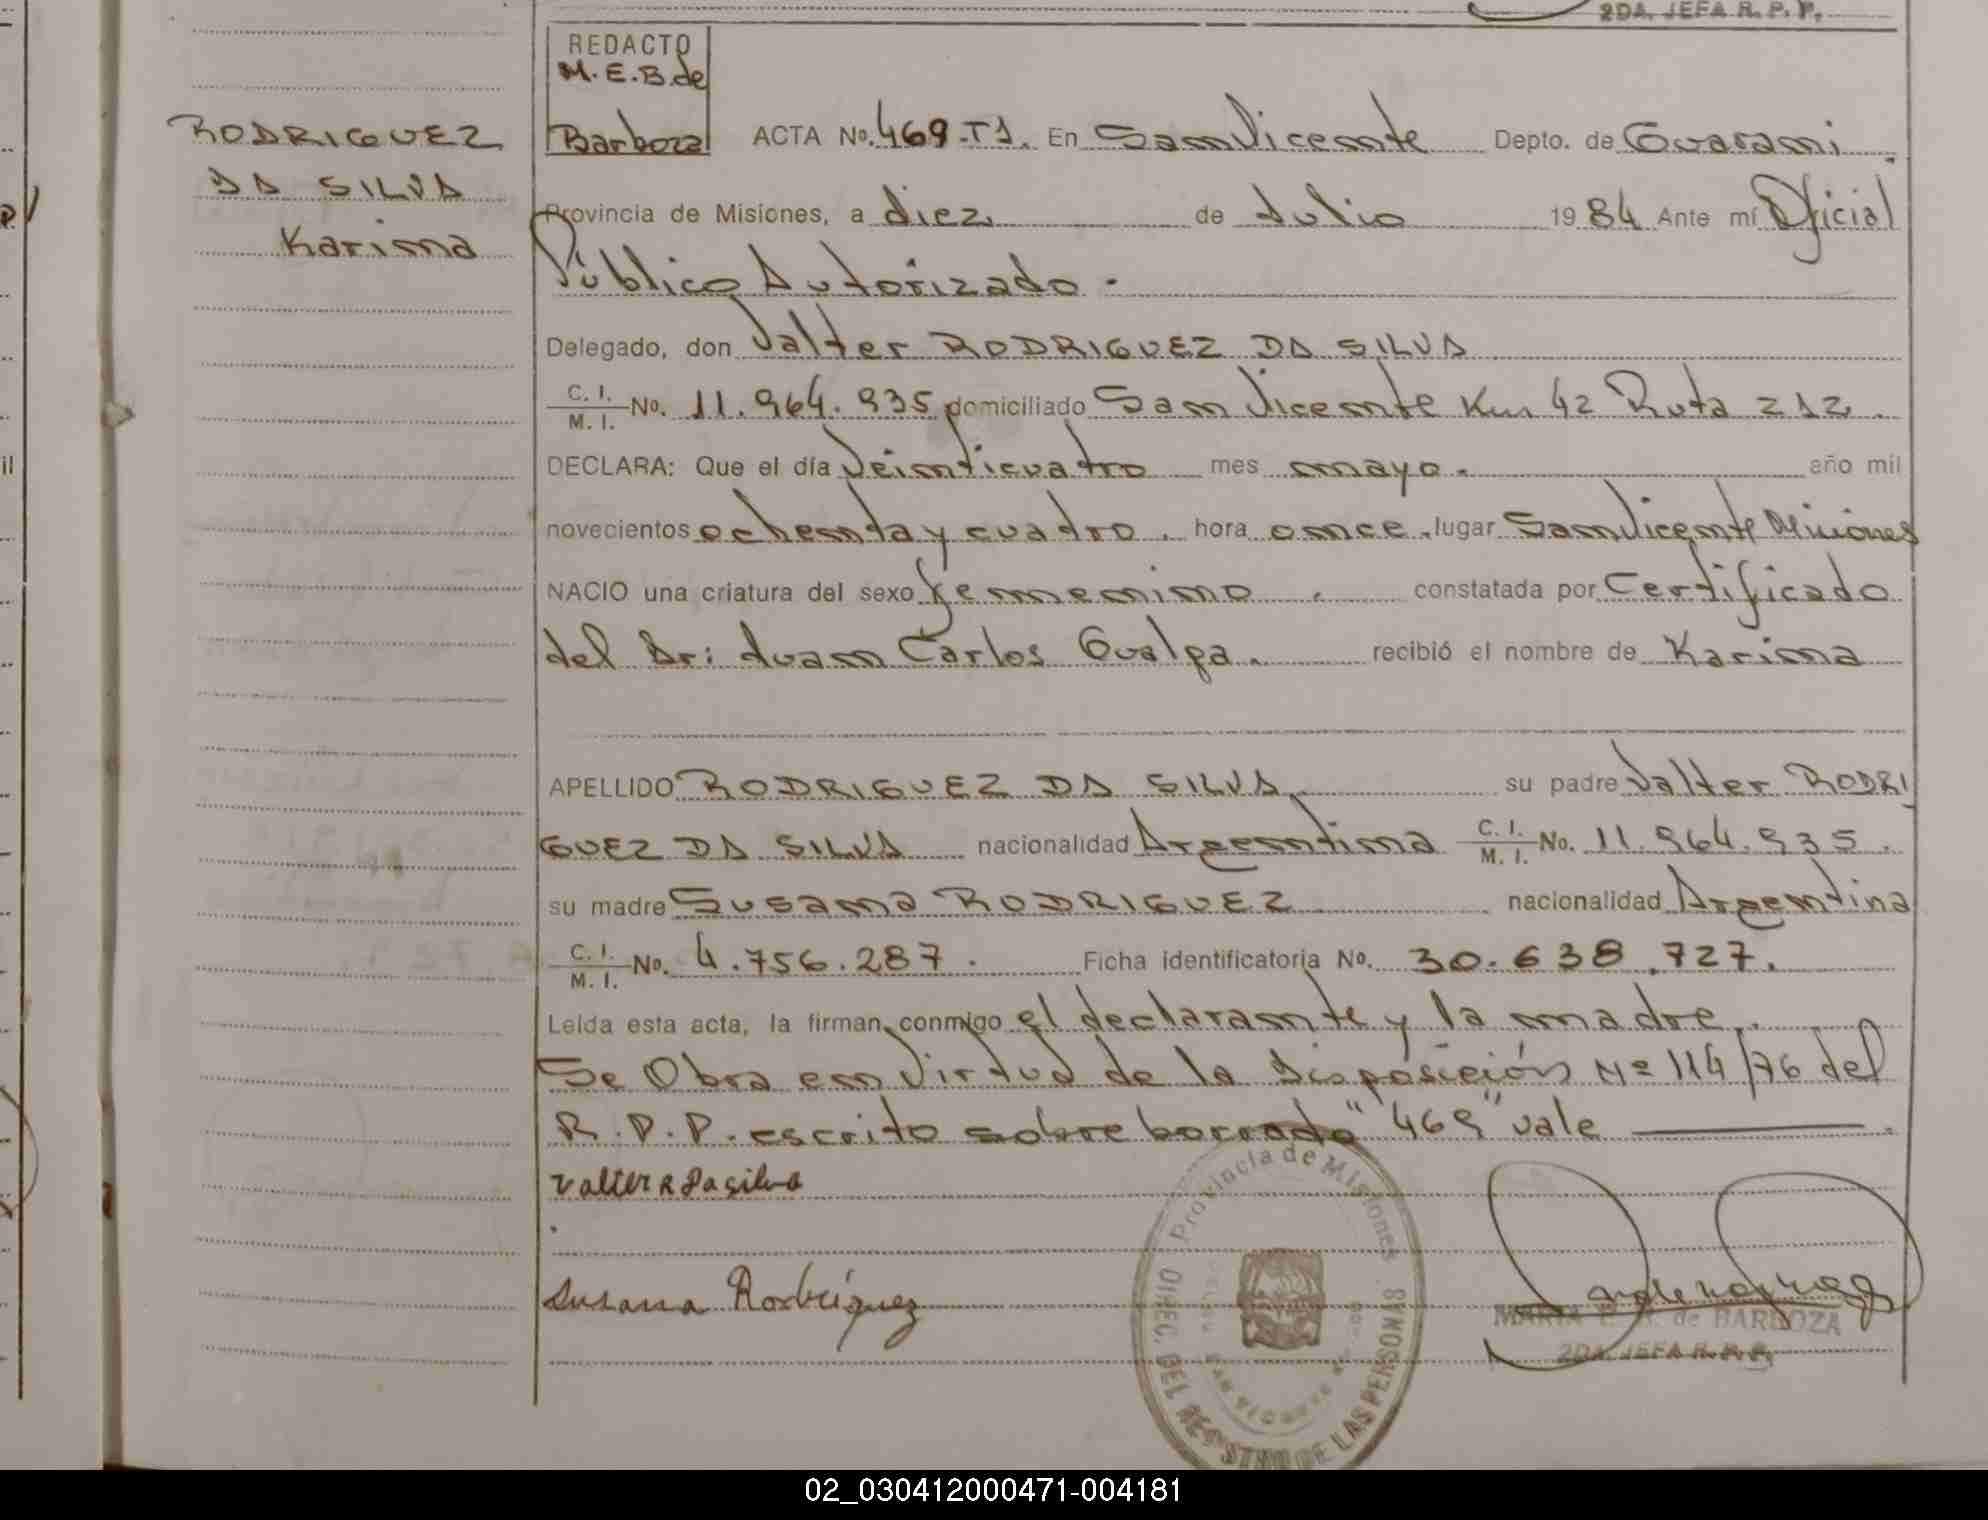 2DA. JEFA R. P. P.
REDACTO
M.E.B. de
Barboza
RODRIGUEZ
DA SILVA
Karina
ACTA No. 469.T1. En San Vicente Depto. de Guarani.
Provincia de Misiones, a diez de Julio 1984 Ante mí Oficial
Público Autorizado.
Delegado, don Valter RODRIGUEZ DA SILVA
C. I. / M. I. No. 11.964.935 domiciliado San Vicente Km 42 Ruta 212.
DECLARA: Que el día Veinticuatro mes mayo. año mil
novecientos ochenta y cuatro. hora once. lugar San Vicente Misiones
NACIO una criatura del sexo femenino. constatada por Certificado
del Dr: Juan Carlos Gualpa. recibió el nombre de Karina
APELLIDO RODRIGUEZ DA SILVA su padre Valter RODRI
GUEZ DA SILVA nacionalidad Argentina C. I. / M. I. No. 11.964.935.
su madre Susana RODRIGUEZ nacionalidad Argentina
C. I. / M. I. No. 4.756.287. Ficha identificatoria No. 30.638.727.
Leída esta acta, la firman conmigo el declarante y la madre.
Se Obra en Virtud de la Disposición Nº 114/76 del
R.P.P. escrito sobre borrado "469" vale
Valter R Dasilva
Susana Rodríguez
Provincia de Misiones
DIREC. DEL REGISTRO DE LAS PERSONAS
SAN VICENTE
MARIA E. B. de BARBOZA
2DA. JEFA R. P. P.
02_030412000471-004181